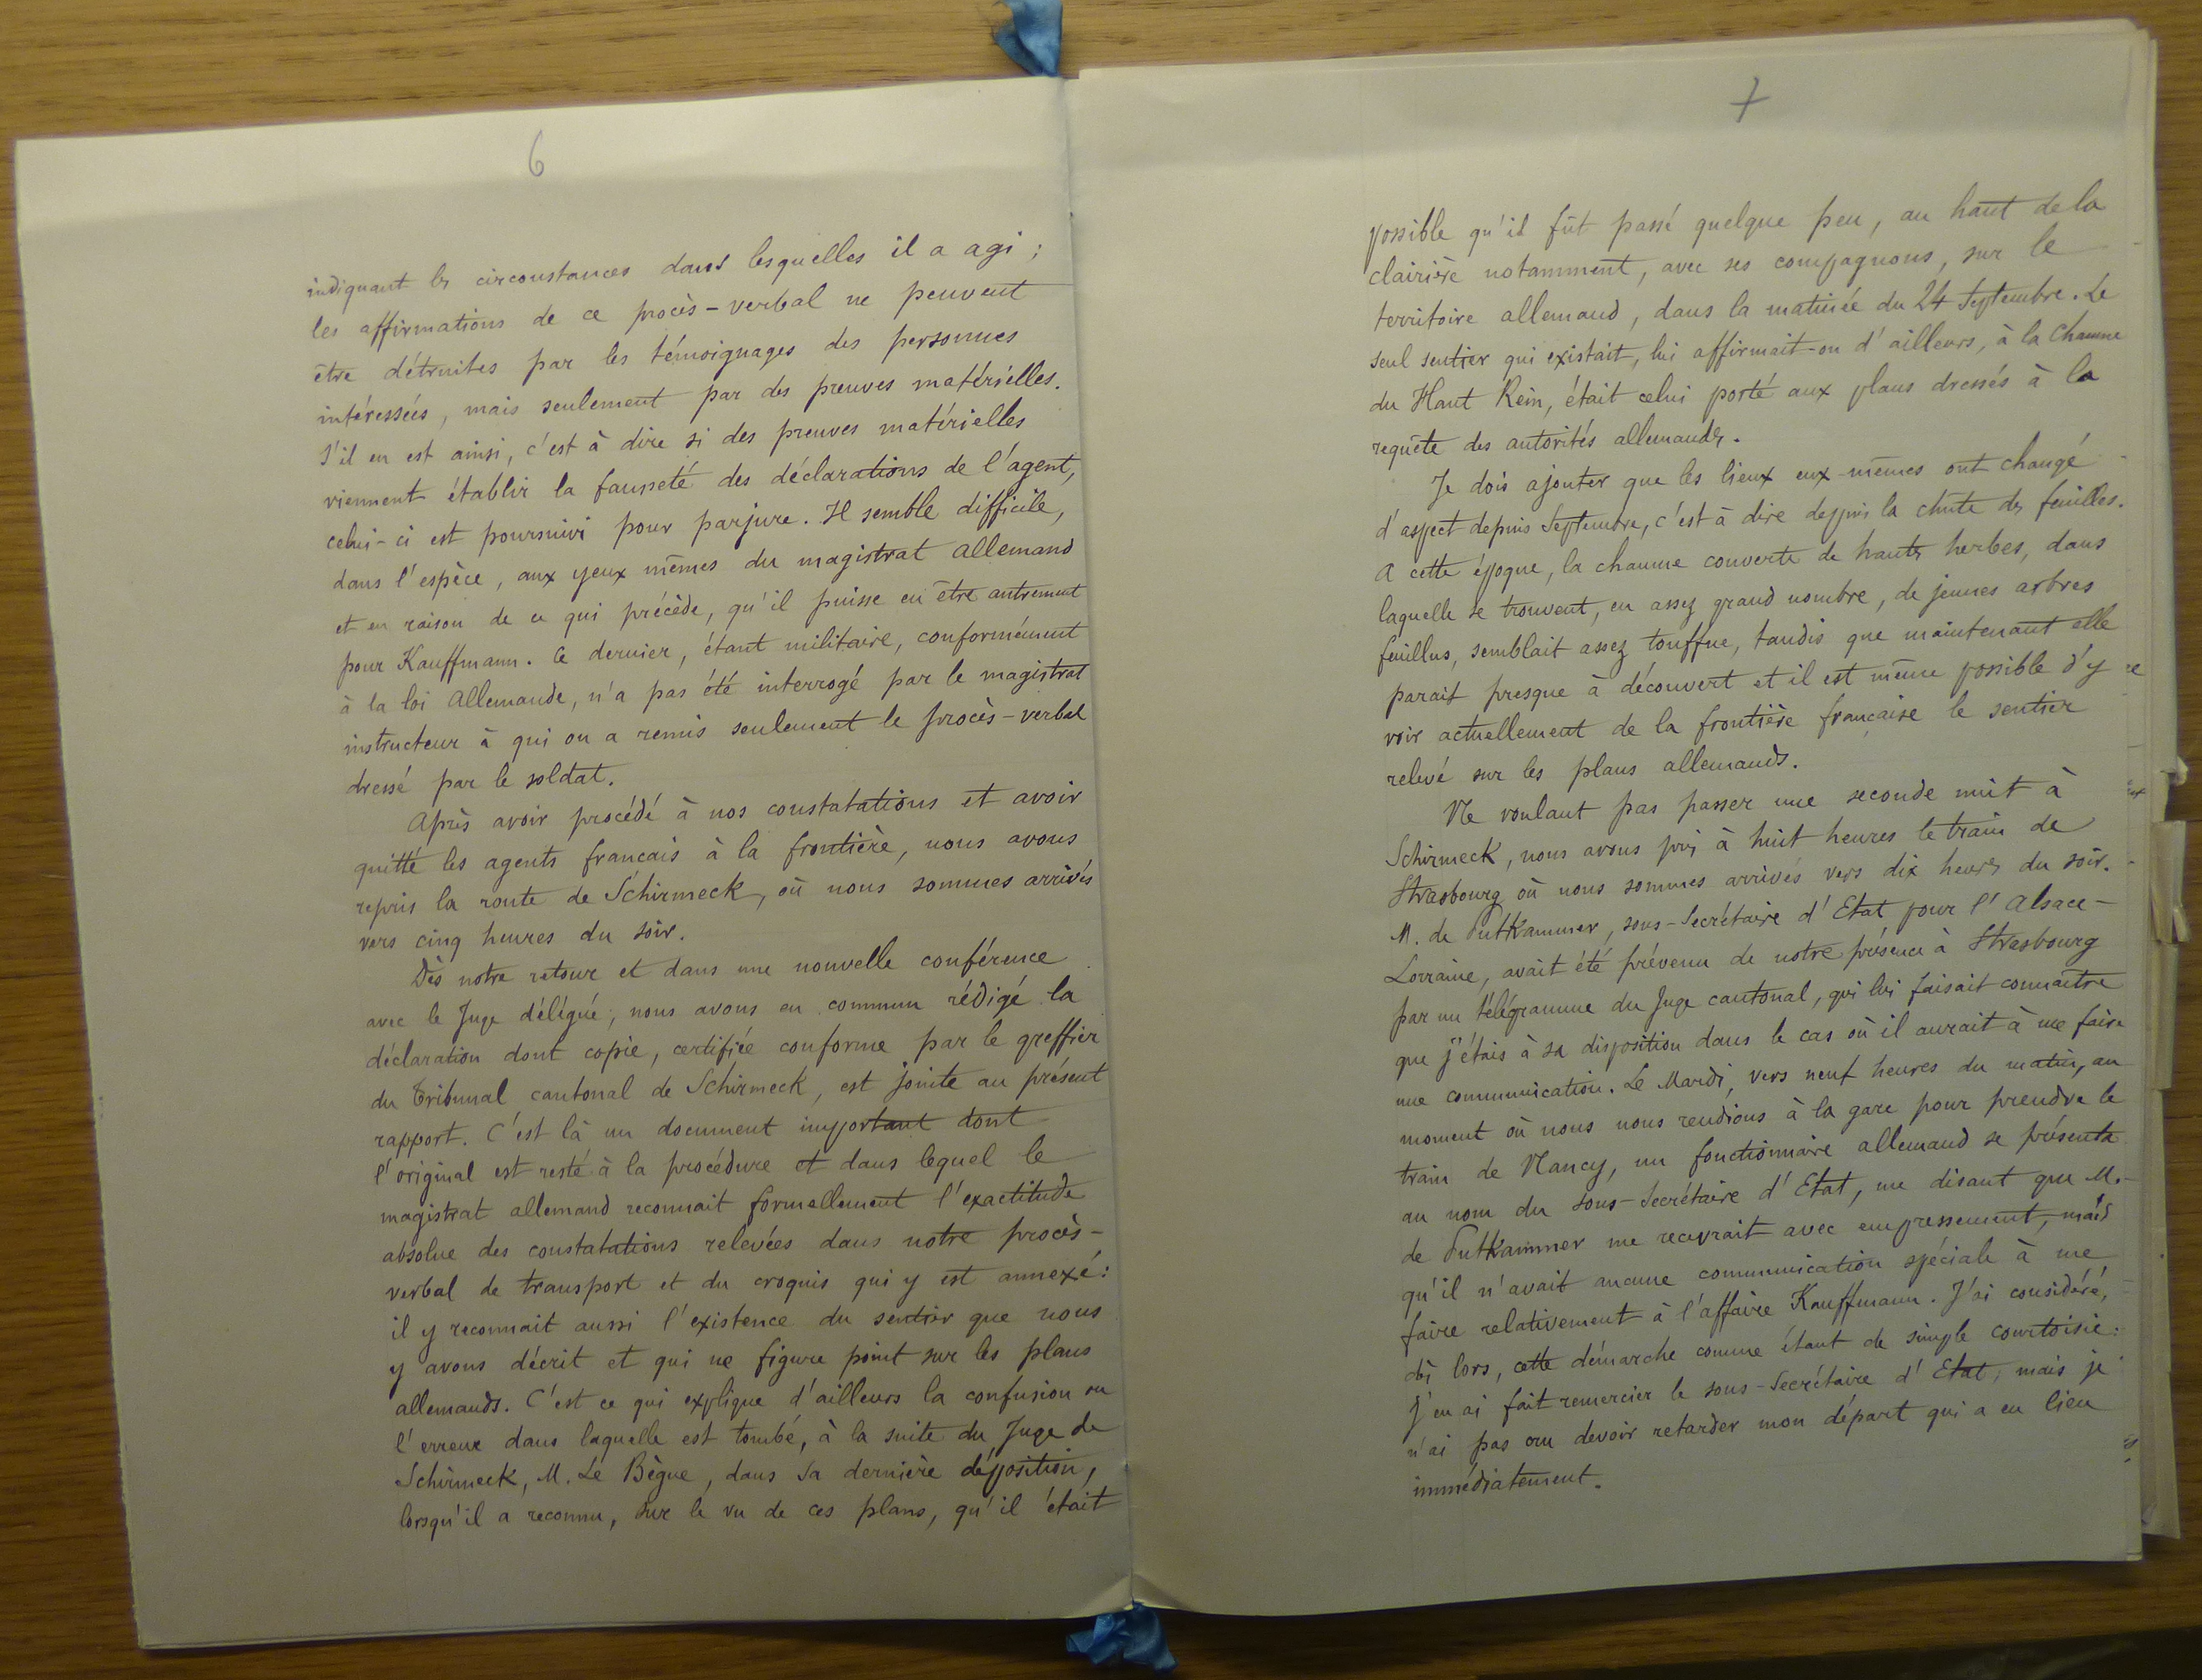 6
indiquant les circonstances dans lesquelles il a agi ;
les affirmations de ce procès-verbal ne peuvent
être détruites par les témoignages des personnes
intéressées, mais seulement par des preuves matérielles.
S'il en est ainsi, c'est à dire si des preuves matérielles
viennent établir la fausseté des déclarations de l'agent,
celui-ci est poursuivi pour parjure. Il semble difficile,
dans l'espèce, aux yeux mêmes du magistrat allemand
et en raison de ce qui précède, qu'il puisse en être autrement
pour Kauffmann. Ce dernier, étant militaire, conformément
à la loi Allemande, n'a pas été interrogé par le magistrat
instructeur à qui on a remis seulement le procès-verbal
dressé par le soldat.
Après avoir procédé à nos constatations et avoir
quitté les agents français à la frontière, nous avons
repris la route de Schirmeck, où nous sommes arrivés
vers cinq heures du soir.
Dès notre retour et dans une nouvelle conférence
avec le Juge délégué, nous avons en commun rédigé la
déclaration dont copie, certifiée conforme par le greffier
du Tribunal cantonal de Schirmeck, est jointe au présent
rapport. C'est là un document important dont
l'original est resté à la procédure et dans lequel le
magistrat allemand reconnait formellement l'exactitude
absolue des constatations relevées dans notre procès-
verbal de transport et du croquis qui y est annexé :
il y reconnait aussi l'existence du sentier que nous
y avons décrit et qui ne figure point sur les plans
allemands. C'est ce qui explique d'ailleurs la confusion ou
l'erreur dans laquelle est tombé, à la suite du Juge de
Schirmeck, M. Le Bègue, dans sa dernière déposition,
lorsqu'il a reconnu, sur le vu de ces plans, qu'il était
7
possible qu'il fût passé quelque peu, au haut de la
clairière notamment, avec ses compagnons, sur le
territoire allemand, dans la matinée du 24 Septembre. Le
seul sentier qui existait, lui affirmait-on d'ailleurs, à la Chaume
du Haut Rein, était celui porté aux plans dressés à la
requête des autorités allemandes.
Je dois ajouter que les lieux eux-mêmes ont changé
d'aspect depuis Septembre, c'est à dire depuis la chute des feuilles.
A cette époque, la chaume couverte de hautes herbes, dans
laquelle se trouvent, en assez grand nombre, de jeunes arbres
feuillus, semblait assez touffue, tandis que maintenant elle
parait presque à découvert et il est même possible d'y
voir actuellement de la frontière française le sentier
relevé sur les plans allemands.
Ne voulant pas passer une seconde nuit à
Schirmeck, nous avons pris à huit heures le train de
Strasbourg où nous sommes arrivés vers dix heures du soir.
M. de Puttkammer, sous-Secrétaire d'Etat pour l'Alsace-
Lorraine, avait été prévenu de notre présence à Strasbourg
par un télégramme du Juge cantonal, qui lui faisait connaître
que j'étais à sa disposition dans le cas où il aurait à me faire
une communication. Le Mardi, vers neuf heures du matin, au
moment où nous nous rendions à la gare pour prendre le
train de Nancy, un fonctionnaire allemand se présenta
au nom du sous-Secrétaire d'Etat, me disant que M.
de Puttkammer me recevrait avec empressement, mais
qu'il n'avait aucune communication spéciale à me
faire relativement à l'affaire Kauffmann. J'ai considéré,
dès lors, cette démarche comme étant de simple courtoisie :
j'en ai fait remercier le sous-Secrétaire d'Etat, mais je
n'ai pas cru devoir retarder mon départ qui a eu lieu
immédiatement.